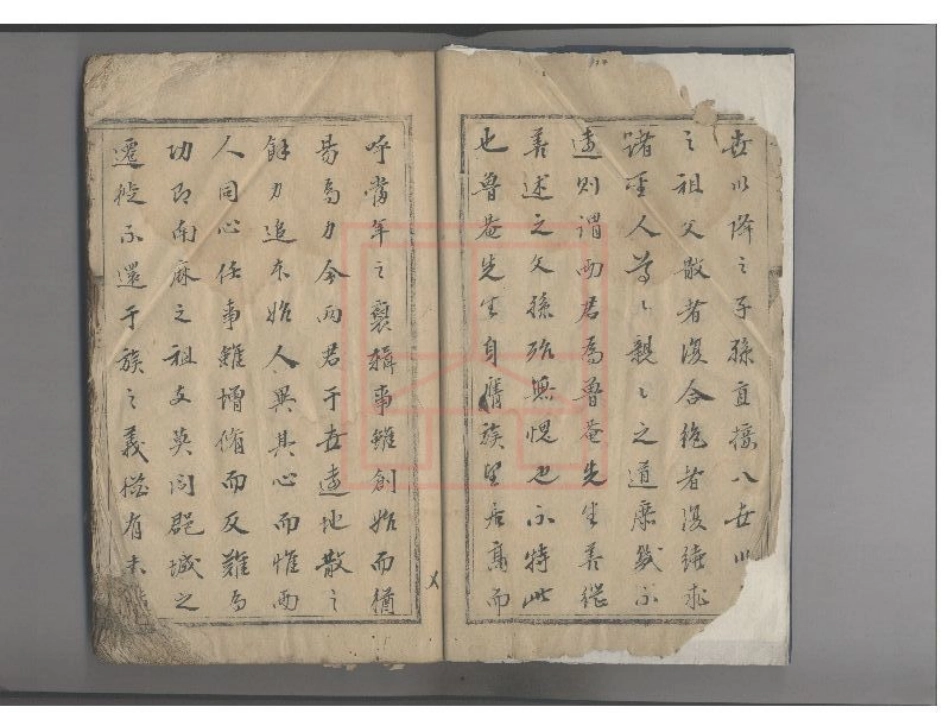 世以降之子孫直接八世以
之祖父散者復合絶者復續求
諸聖人尊〻親〻之道庶幾不
遠則謂兩君爲魯菴先生善繼
善述之文孫殆無愧也不特此
也魯菴先生自膺族望居高而
呼當年之裒輯事雖創始而猶
易爲力今兩君于世遠地散之
餘力追本始人異其心而惟兩
人同心任事雖增脩而反難爲
功即南麻之祖支莫問郡城之
遷徙不還于族之義猶有未